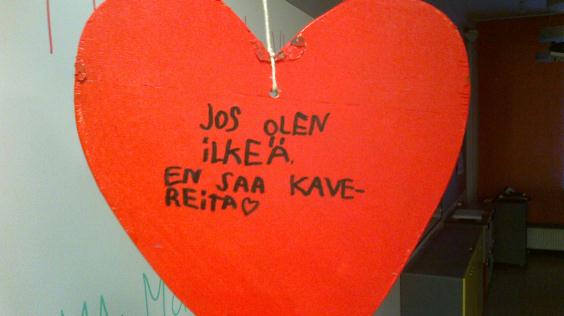 JOS OLEN
iLKEÄ,
EN SAA KAVE-
REiTA♡